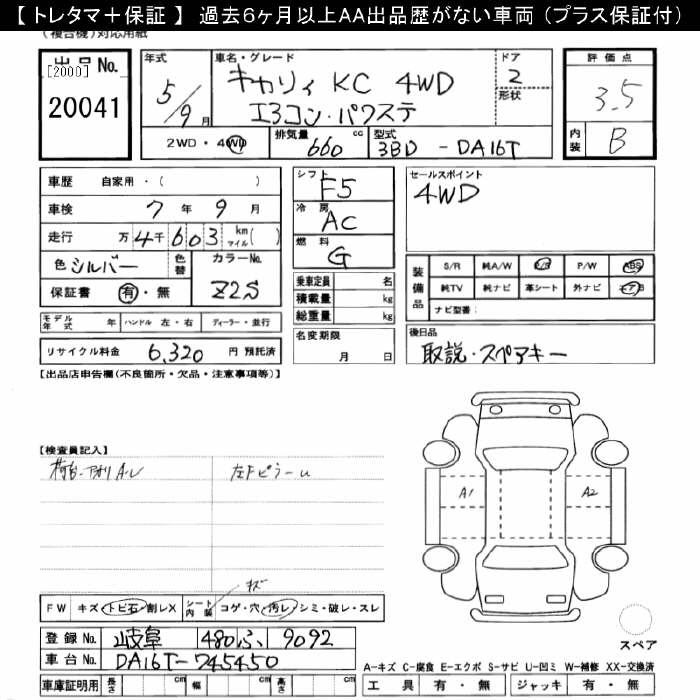 【 トレタマ＋保証 】 過去6ヶ月以上AA出品歴がない車両 (プラス保証付)
(複合機) 対応用紙
出品No.
[2000]
20041
年式
5/9月
車名・グレード
キャリィ KC 4WD
エアコン・パワステ
ドア
2
形状
評価点
3.5
内装
B
2WD・4WD
排気量
660 cc
型式
3BD - DA16T
車歴 自家用・( )
車検 7年 9月
走行 万 4千 603 km マイル( )
色 シルバー 色替 カラーNo.
Z2S
保証書 有・無
シフト
F5
冷房
AC
燃料
G
セールスポイント
4WD
乗車定員 名
積載量 kg
総重量 kg
装備品
S/R 純A/W P/S P/W ABS
純TV 純ナビ 革シート 外ナビ エアB
ナビ型番:
モデル年式 年 ハンドル 左・右 ディーラー・並行
リサイクル料金 6,320 円 預託済
名変期限
月 日
後日品
取説・スペアキー
【出品店申告欄(不良箇所・欠品・注意事項等)】
【検査員記入】
左Fピラーu
A1
A2
キズ
FW キズ・トビ石・割レX シート内装 コゲ・穴・汚レ・シミ・破レ・スレ
登録No. 岐阜 480 ふ 9092
車台No. DA16T-745450
車庫証明用 長さ cm 幅 cm 高さ cm
スペア
A-キズ C-腐食 E-エクボ S-サビ U-凹ミ W-補修 XX-交換済
工具 有・無 ジャッキ 有・無